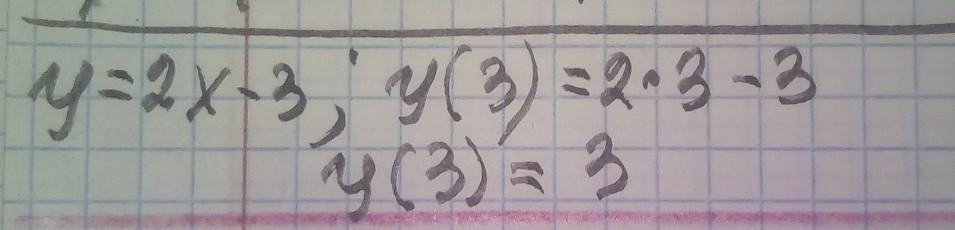 y=2x-3; y(3)=2·3-3
y(3)=3